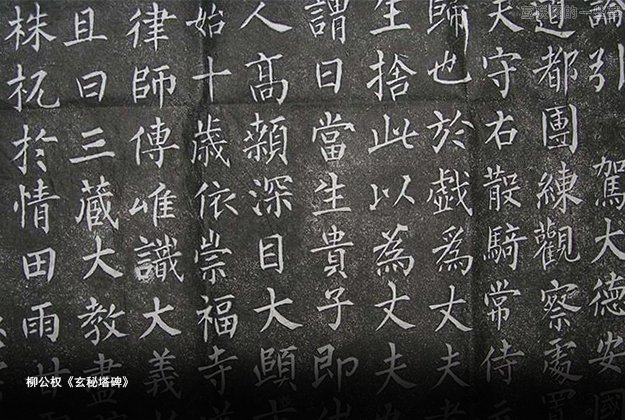 論引駕大德安國
道都團練觀察處
夫守右散騎常侍
歸也於戲為丈夫
生捨此以為丈夫
謂曰當生貴子即
人高顙深目大頤
始十歲依崇福寺
律師傳唯識大義
且曰三藏大教盡
株杌於情田雨
柳公权《玄秘塔碑》